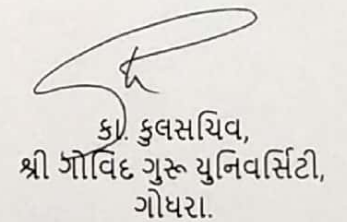 કા. કુલસચિવ,
શ્રી ગોવિંદ ગુરૂ યુનિવર્સિટી,
ગોધરા.